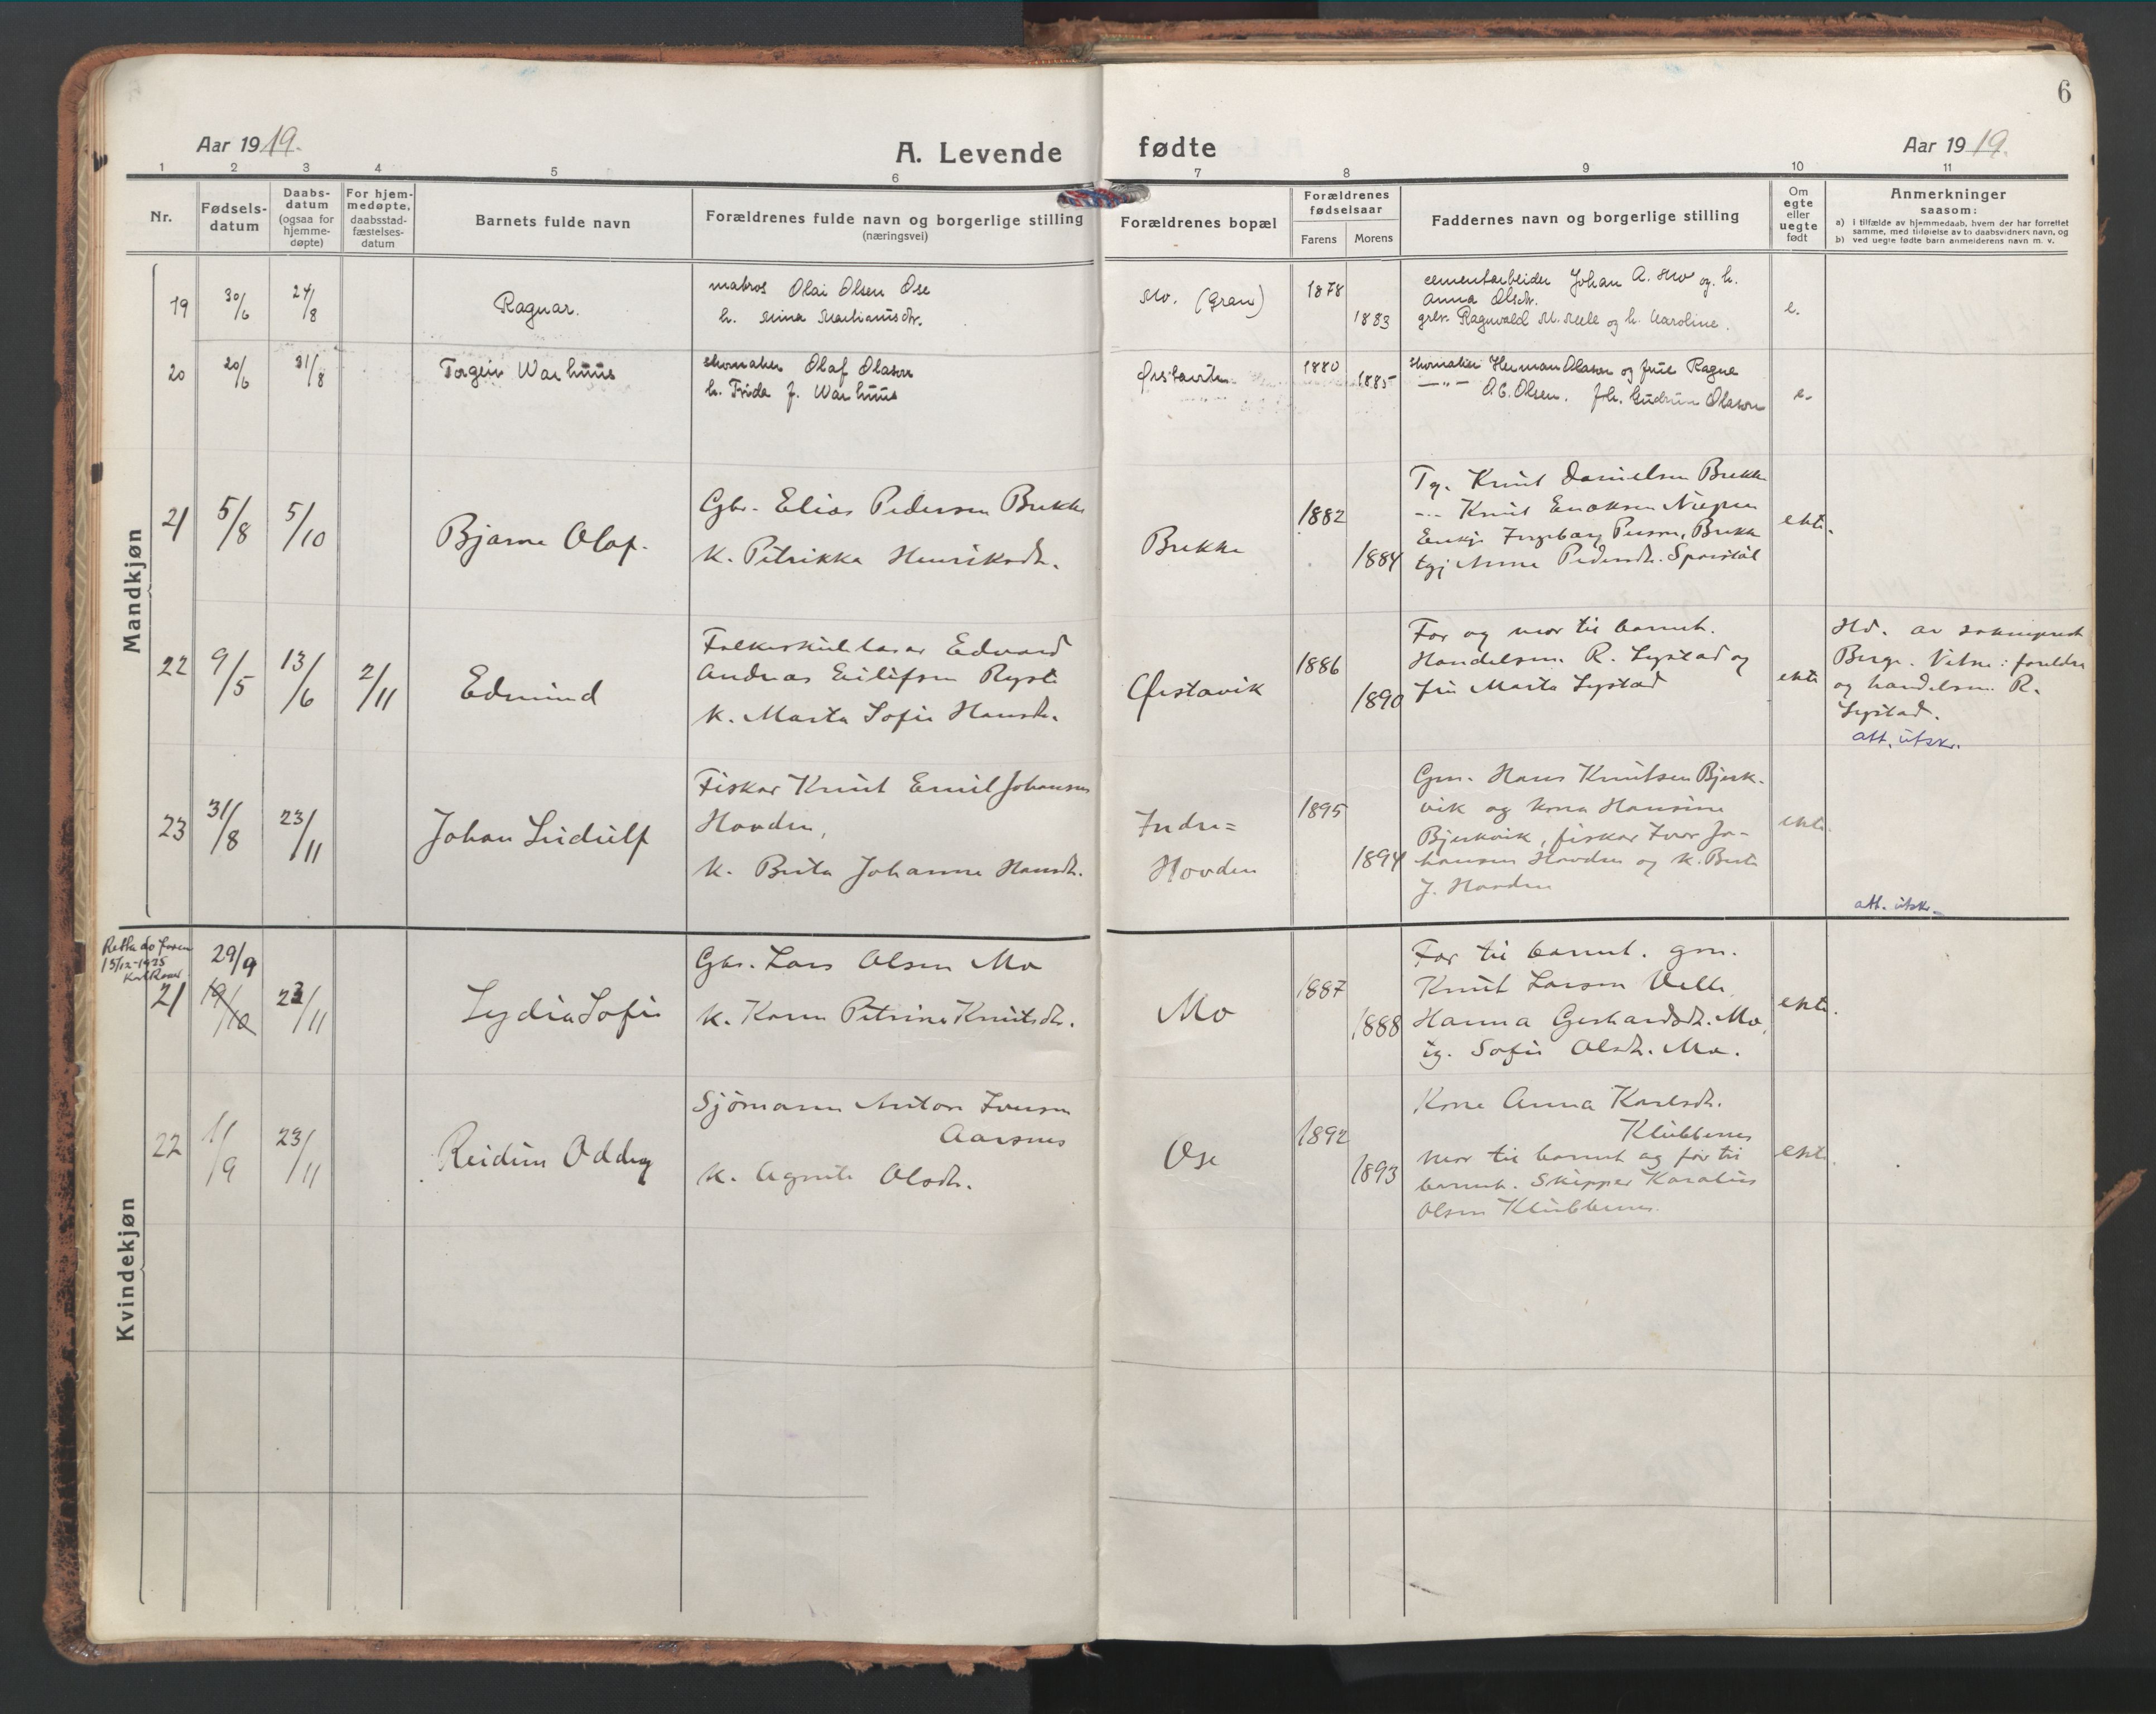 6
Aar 1919.
A. Levende fødte
Aar 1919.
1 2 3 4 5 6 7 8 9 10 11
Nr.
Fødsels-
datum
Daabs-
datum
(ogsaa for
hjemme-
døpte)
For hjem-
medøpte,
daabsstad-
fæstelses-
datum
Barnets fulde navn
Forældrenes fulde navn og borgerlige stilling
(næringsvei)
Forældrenes bopæl
Forældrenes
fødselsaar
Farens Morens
Faddernes navn og borgerlige stilling
Om
egte
eller
uegte
født
Anmerkninger
saasom:
a) i tilfælde av hjemmedaab, hvem der har forrettet
samme, med tilføielse av to daabsvidners navn, og
b) ved uegte fødte barn anmelderens navn m. v.
Mandkjøn
19 30/6 24/8
Ragnar.
matros Olai Olsen Ose
h. Mina Martiansdtr.
Mo. (Gran)
1878
1883
cementarbeider Johan A. Mo og h.
Anna Olsdtr.
grbr. Ragnvald M. Melle og h. Karoline.
e.
20 20/6 31/8
Torgeir Warhuus
skomaker Olaf Olason
h. Frida J. Warhuus
Ørstavik
1880
1885
skomaker Herman Olason og frue Ragna
—"— O.C. Olsen. Frk. Gudrun Olason
e.
21 5/8 5/10
Bjarne Olaf.
Gbr. Elias Pedersen Brekke
K. Petrikka Henriksdtr.
Brekke
1882
1884
Tg. Knut Danielsen Brekke
-"- Knut Enoksen
Enkje Ingeborg Brekke
tgj Anna Pedersdtr.
ekte.
22 9/5 13/6 2/11
Edmund
Folkeskulelærar Edvard
Andreas Eilifsen Ryste
K. Marta Sofie Hansdtr.
Ørstavik
1886
1890
Far og mor til barnet.
Handelsm. R. Lystad og
fru Marta Lystad
ekte
Hd. av sokneprest
Berge. Vitne: foreldre
og handelsm. R.
Lystad.
att. utskr.
23 31/8 23/11
Johan Ludulf
Fiskar Knut Emil Johansen
Hovden,
K. Berta Johanne Hansdtr.
Indre=
Hovden
1895
1894
Gm. Hans Knutsen Bjørk-
vik og kona Hansine
Bjørkvik, fiskar Ivar Jo-
hansen Hovden og K. Berte
J. Hovden
ekte.
att. utskr.
Kvindekjøn
15/12-1925
21 29/9 19/10 23/11
Lydia Sofie
Gbr. Lars Olsen Mo
K. Karen Petrine Knutsdtr.
Mo
1887
1888
Far til barnet. gm.
Knut Larsen Velle,
Hanna Gerhardsdtr. Mo,
ug. Sofie Olsdtr. Mo.
ekte.
22 1/9 23/11
Reidun Oddny
Sjömann Anton Iversen
Aarsnes
K. Agnete Olsdtr.
Ose
1892
1893
Kone Anna Karlsdtr.
Klubbenes
Mor til barnet og far til
barnet. Skipper Karolius
Olsen Klubbenes.
ekte.